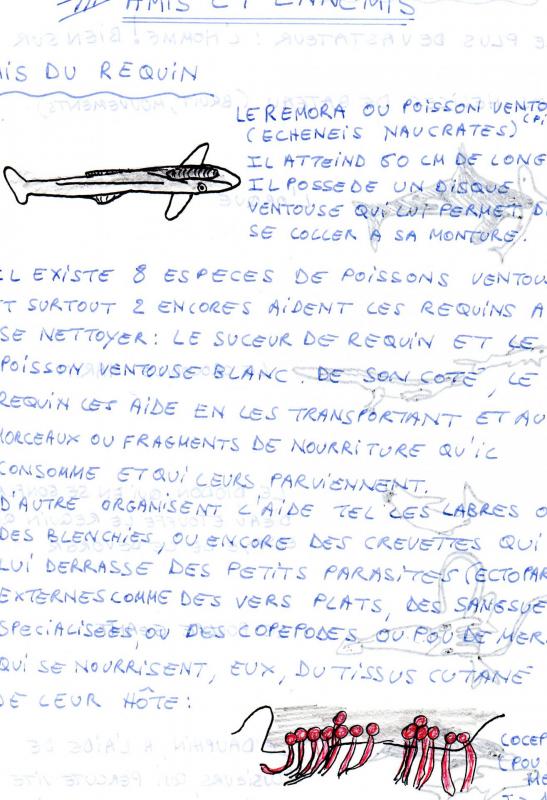 AMIS ET ENNEMIS
IS DU REQUIN
LE REMORA OU POISSON VENTO
(ECHENEIS NAUCRATES) (Pi
IL ATTEIND 60 CM DE LONG
IL POSSEDE UN DISQUE
VENTOUSE QUI LUI PERMET D
SE COLLER A SA MONTURE.
IL EXISTE 8 ESPECES DE POISSONS VENTOUS
T SURTOUT 2 ENCORES AIDENT LES REQUINS A
SE NETTOYER: LE SUCEUR DE REQUIN ET LE
POISSON VENTOUSE BLANC. DE SON COTÉ, LE
REQUIN LES AIDE EN LES TRANSPORTANT ET AU
MORCEAUX OU FRAGMENTS DE NOURRITURE QU'IL
CONSOMME ET QUI LEURS PARVIENNENT.
D'AUTRE ORGANISENT L'AIDE TEL LES LABRES O
DES BLENCHIES, OU ENCORE DES CREVETTES QUI
LUI DERRASSE DES PETITS PARASITES (ECTOPAR
EXTERNES COMME DES VERS PLATS, DES SANGSUE
SPECIALISÉES, OU DES COPEPODES OU POU DE MER
QUI SE NOURRISENT, EUX, DU TISSUS CUTANÉ
DE LEUR HÔTE:
(COCEP
(POU
ME